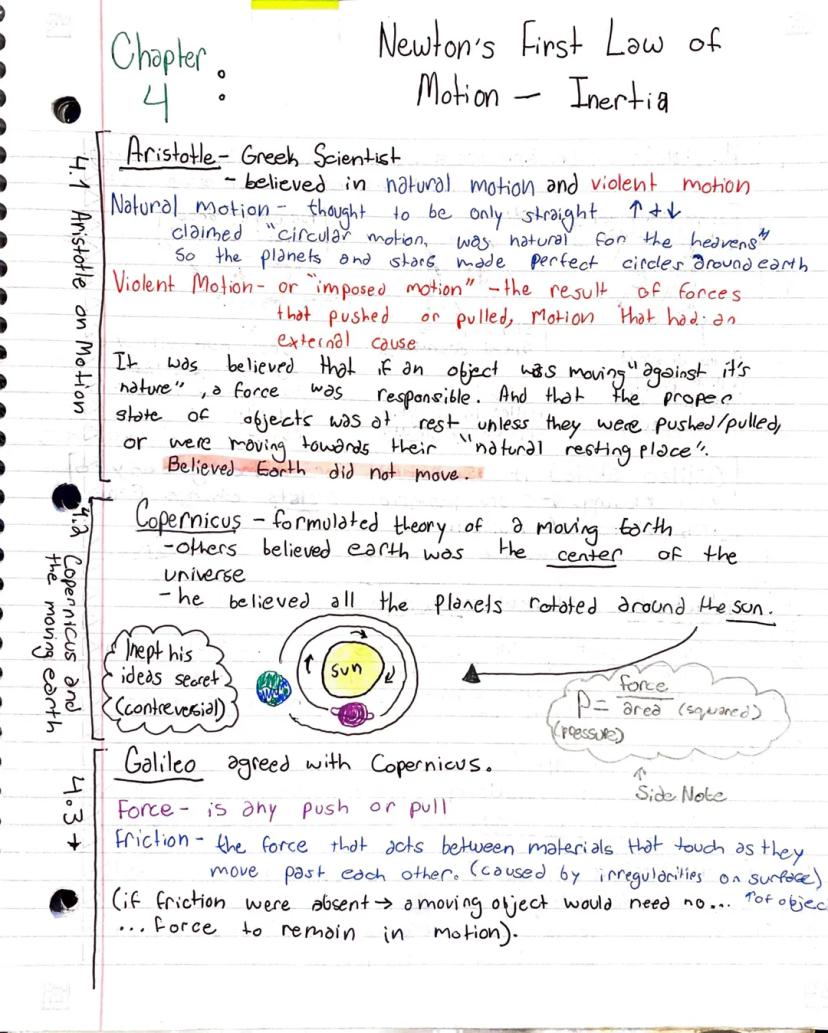 Chapter 4:
Newton's First Law of
Motion — Inertia
4.1 Aristotle on Motion
Aristotle - Greek Scientist
- believed in natural motion and violent motion
Natural motion - thought to be only straight ↑ + ↓
claimed "circular motion, was natural for the heavens"
So the planets and stars made perfect circles around earth
Violent Motion - or "imposed motion" - the result of forces
that pushed or pulled, Motion that had an
external cause
It was believed that if an object was moving "against it's
nature", a force was responsible. And that the proper
state of objects was at rest unless they were pushed/pulled,
or were moving towards their "natural resting place".
Believed Earth did not move.
4.2 Copernicus and
the moving earth
Copernicus - formulated theory of a moving Earth
- others believed earth was the center of the
universe
- he believed all the planets rotated around the sun.
kept his
ideas secret
(contreversial)
sun
P = force / area (squared)
(pressure)
↑
Side Note
4.3 →
Galileo agreed with Copernicus.
Force - is any push or pull
Friction - the force that acts between materials that touch as they
move past each other. (caused by irregularities on surface)
↑ of objec
(if friction were absent → a moving object would need no...
... force to remain in motion).